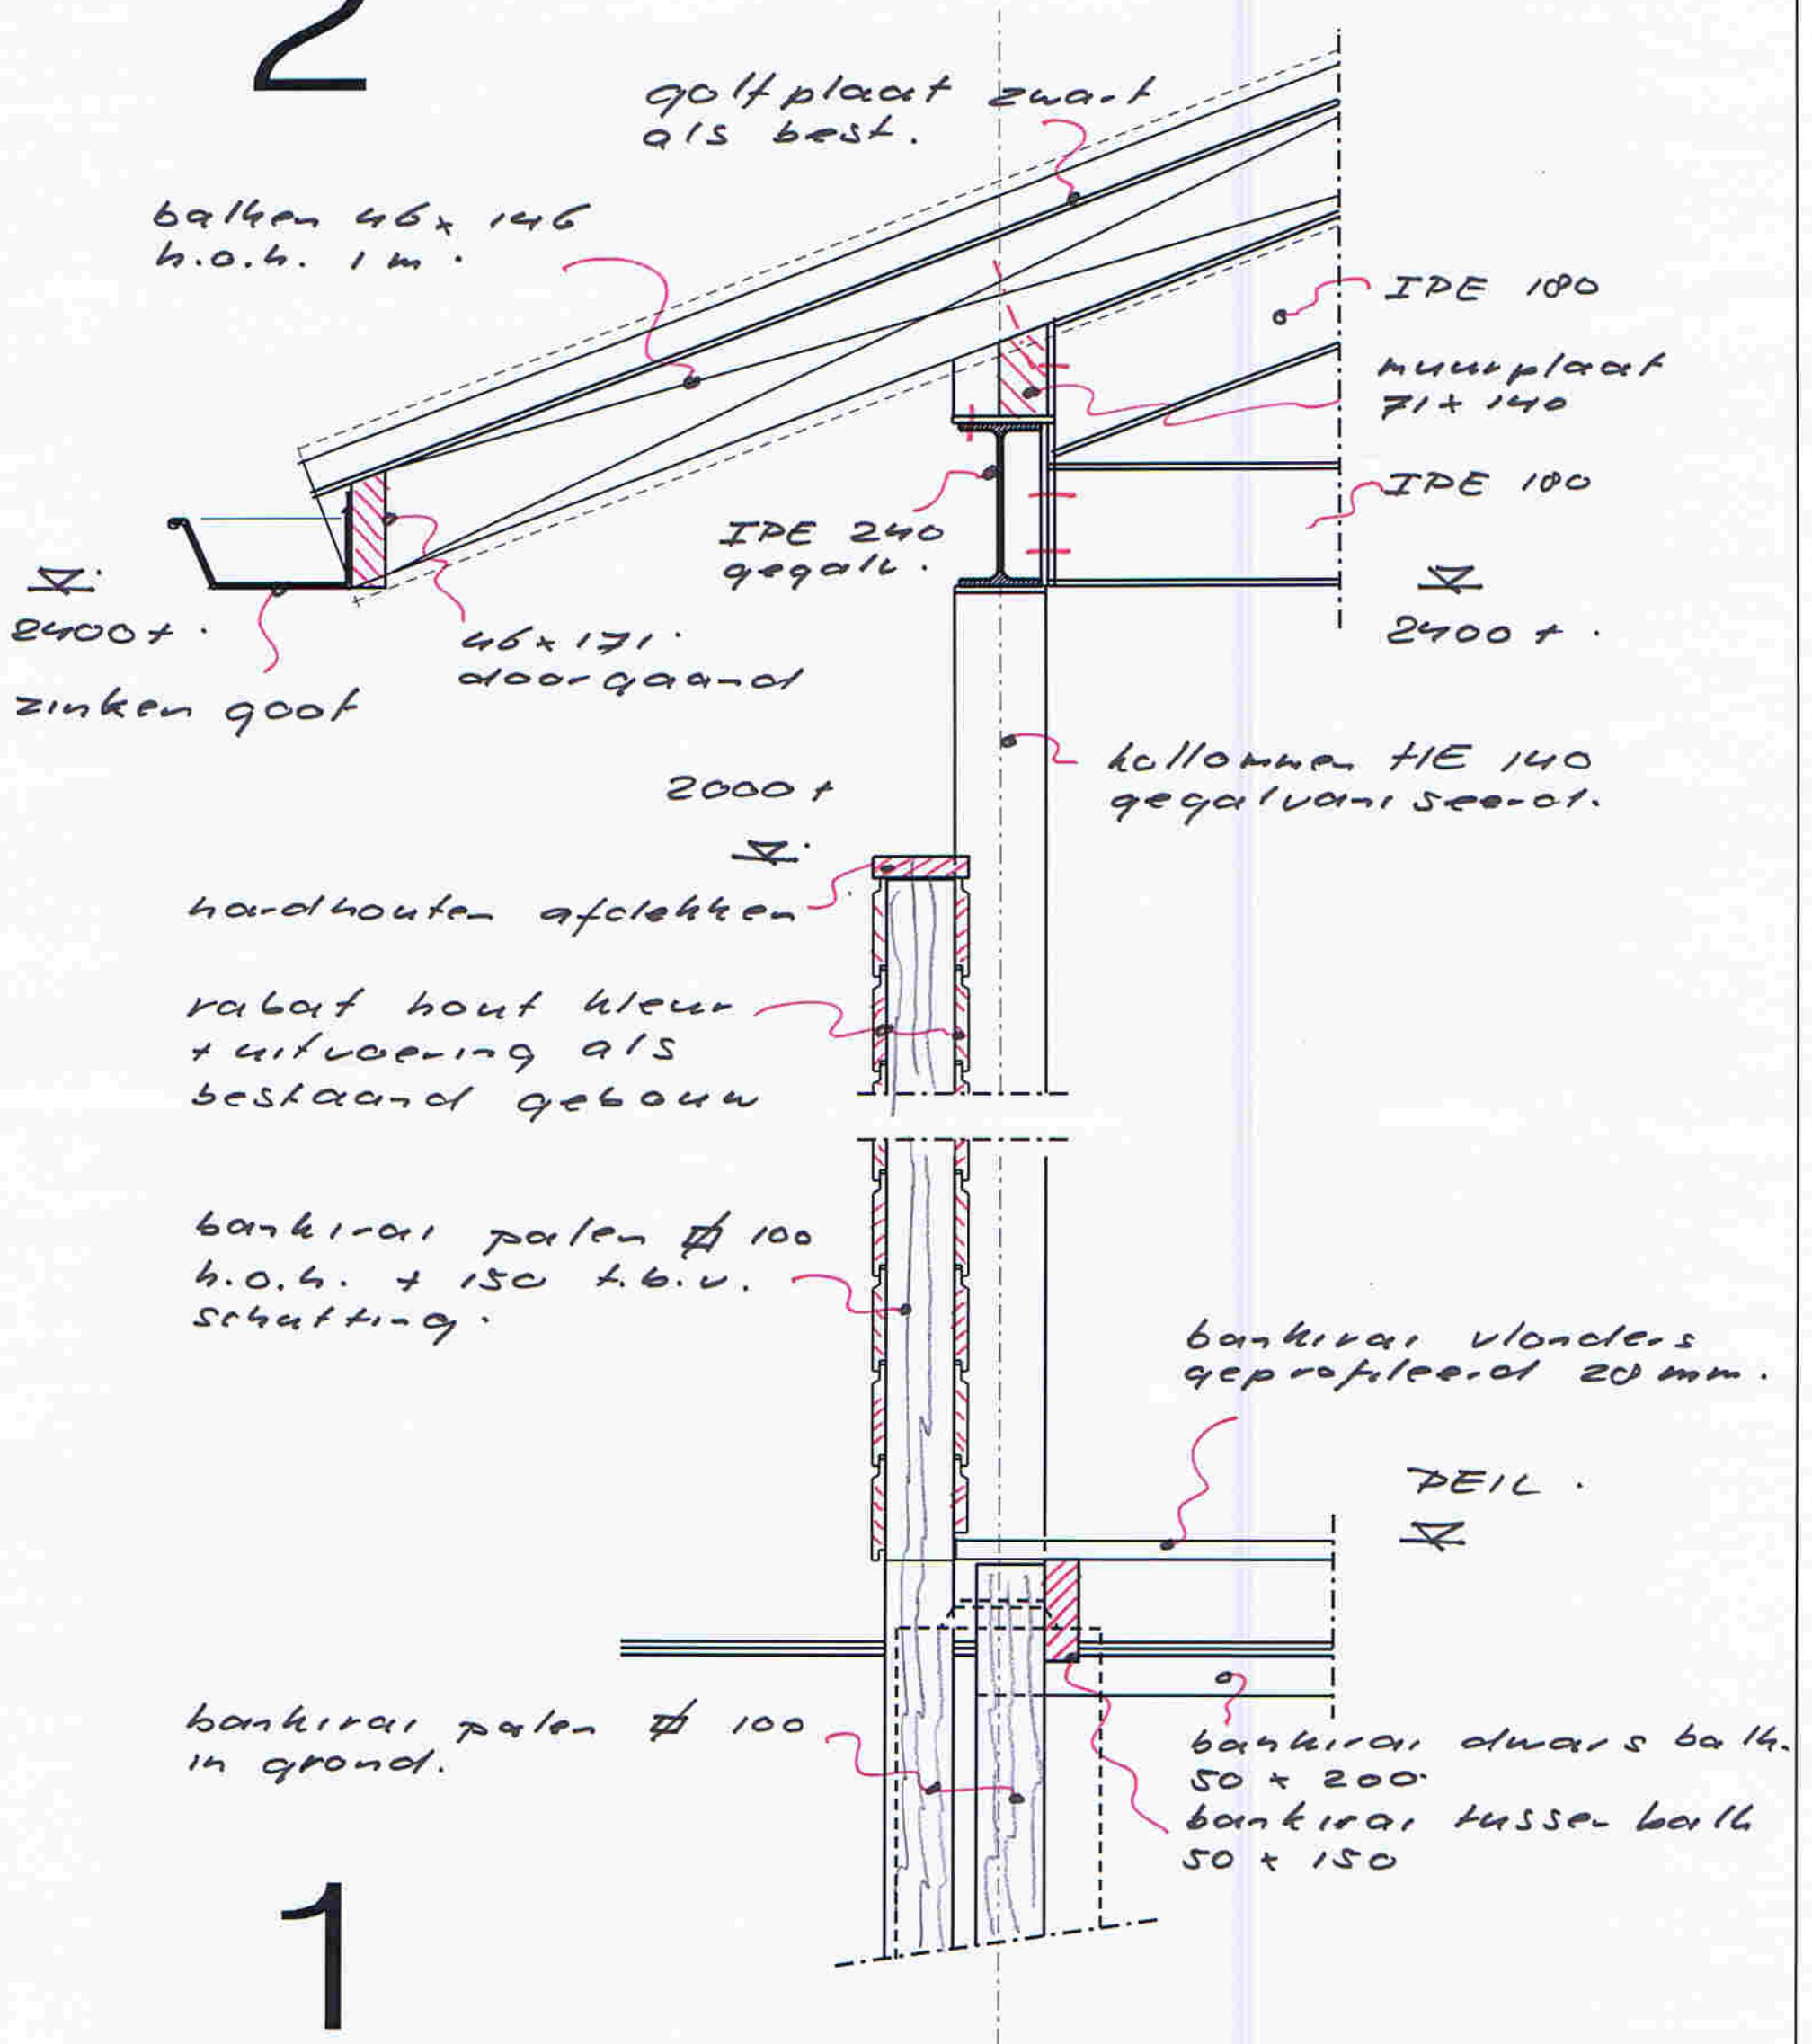 2
golfplaat zwart
als best.
balken 46 x 146
h.o.h. 1 m.
IPE 180
muurplaat
71 x 140
IPE 180
IPE 240
gegalv.
2400+.
2400+.
46 x 171.
doorgaand
zinken goot
kollommen HE 140
gegalvaniseerd.
2000+
hardhouten afdekken
rabat hout kleur
+ uitvoering als
bestaand gebouw
bankirai palen ⌀ 100
h.o.h. + 150 t.b.v.
schutting.
bankirai vlonders
geprofileerd 28 mm.
PEIL.
bankirai palen ⌀ 100
in grond.
bankirai dwars balk.
50 x 200.
bankirai tussen balk
50 x 150
1